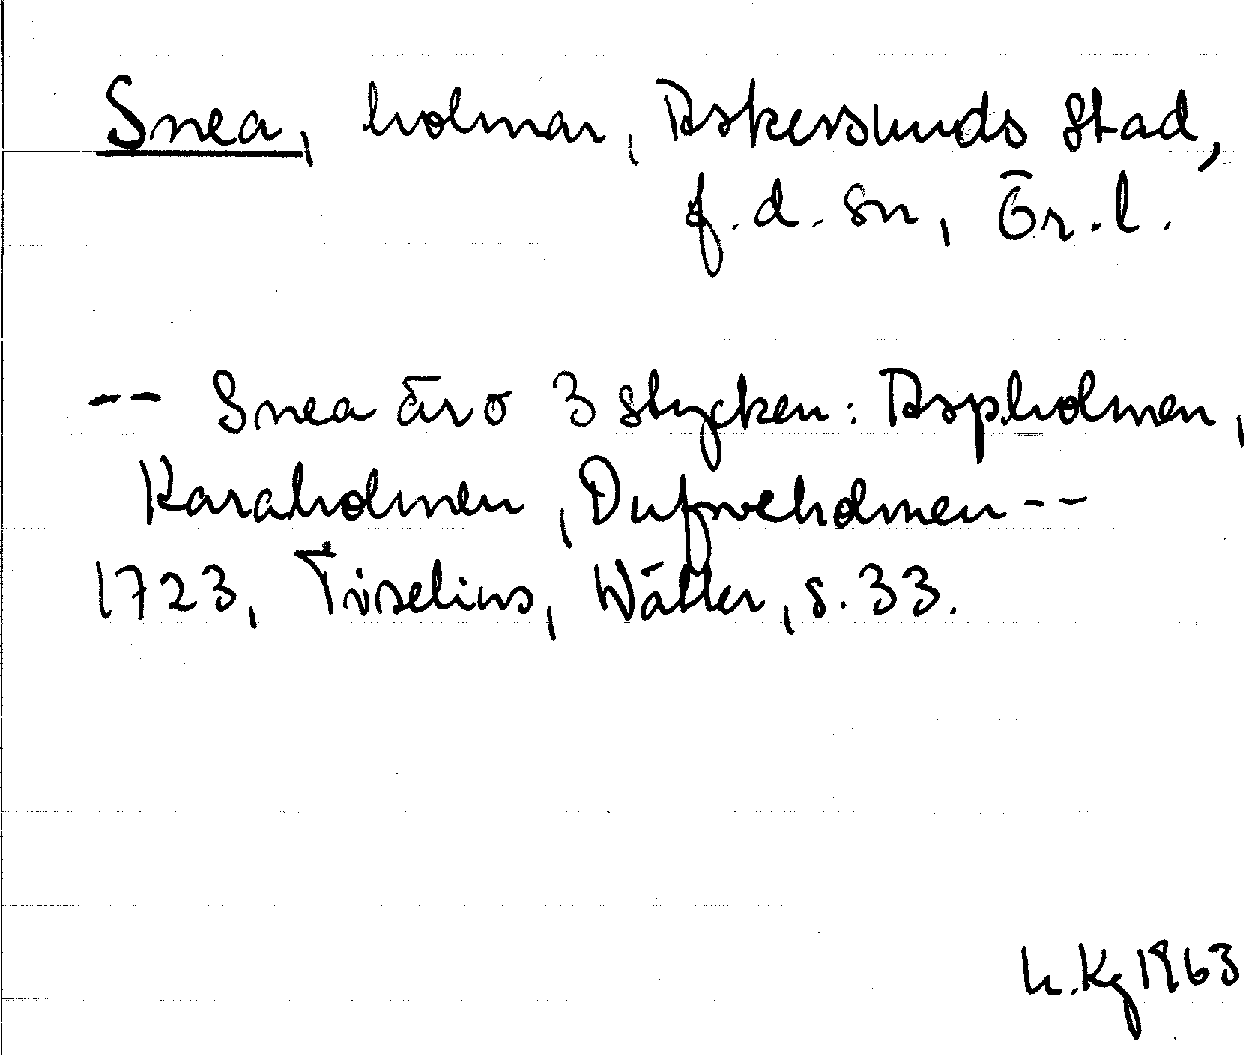 Snea, holmar, Askersunds stad,
f.d. sn, Ör.l.
-- Snea äro 3 stycken: Aspholmen,
Karaholmen, Dufweholmen --
1723, Tiselius, Wätter, s. 33.
h.Kg 1963